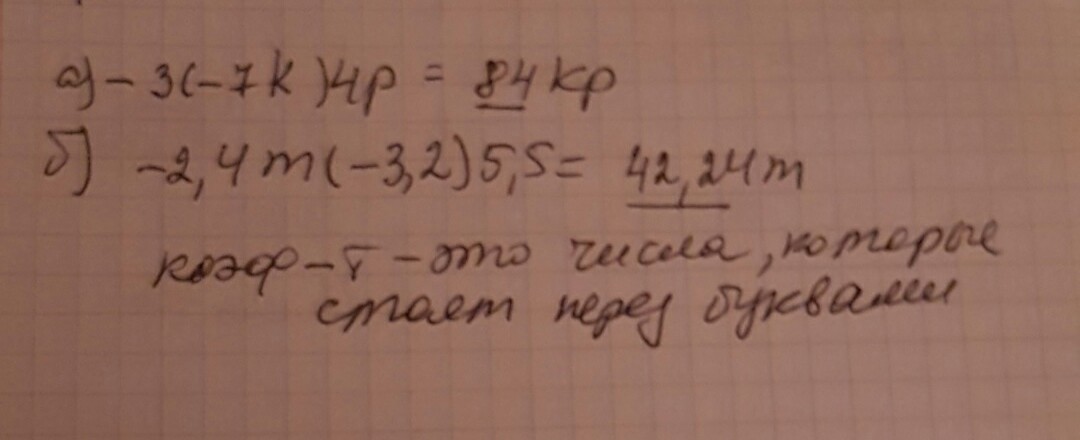 а) - 3(-7k)4p = 84kp
б) -2,4m(-3,2)5,5= 42,24m
коэф-т - это числа, которые
стоят перед буквами